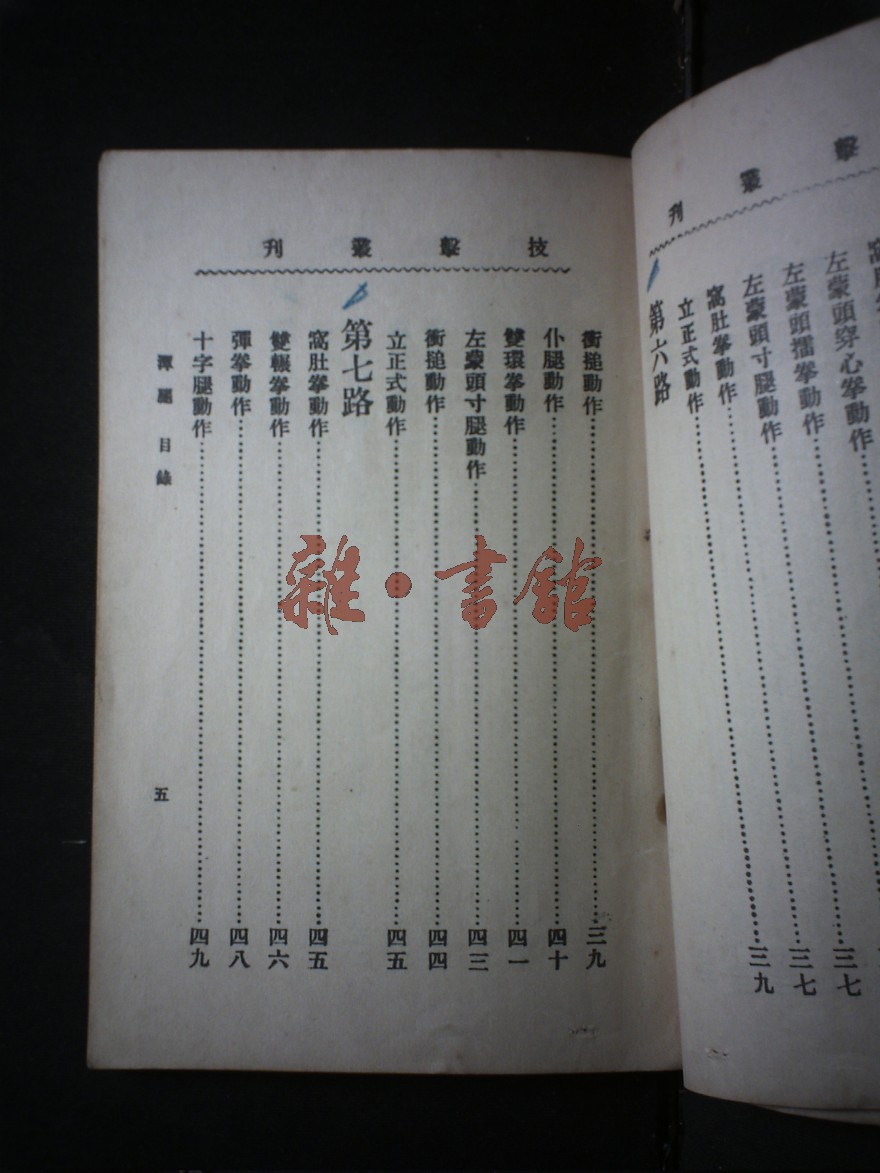 擊叢刊
左蒙頭穿心拳動作
左蒙頭擂拳動作……三七
左蒙頭寸腿動作……三七
窩肚拳動作……三九
立正式動作
第六路
技擊叢刊
衝搥動作……三九
仆腿動作……四十
雙環拳動作……四一
左蒙頭寸腿動作……四三
衝搥動作……四四
立正式動作……四五
第七路
窩肚拳動作……四五
雙輾拳動作……四六
彈拳動作……四八
十字腿動作……四九
潭腿 目錄
五
雜·書館